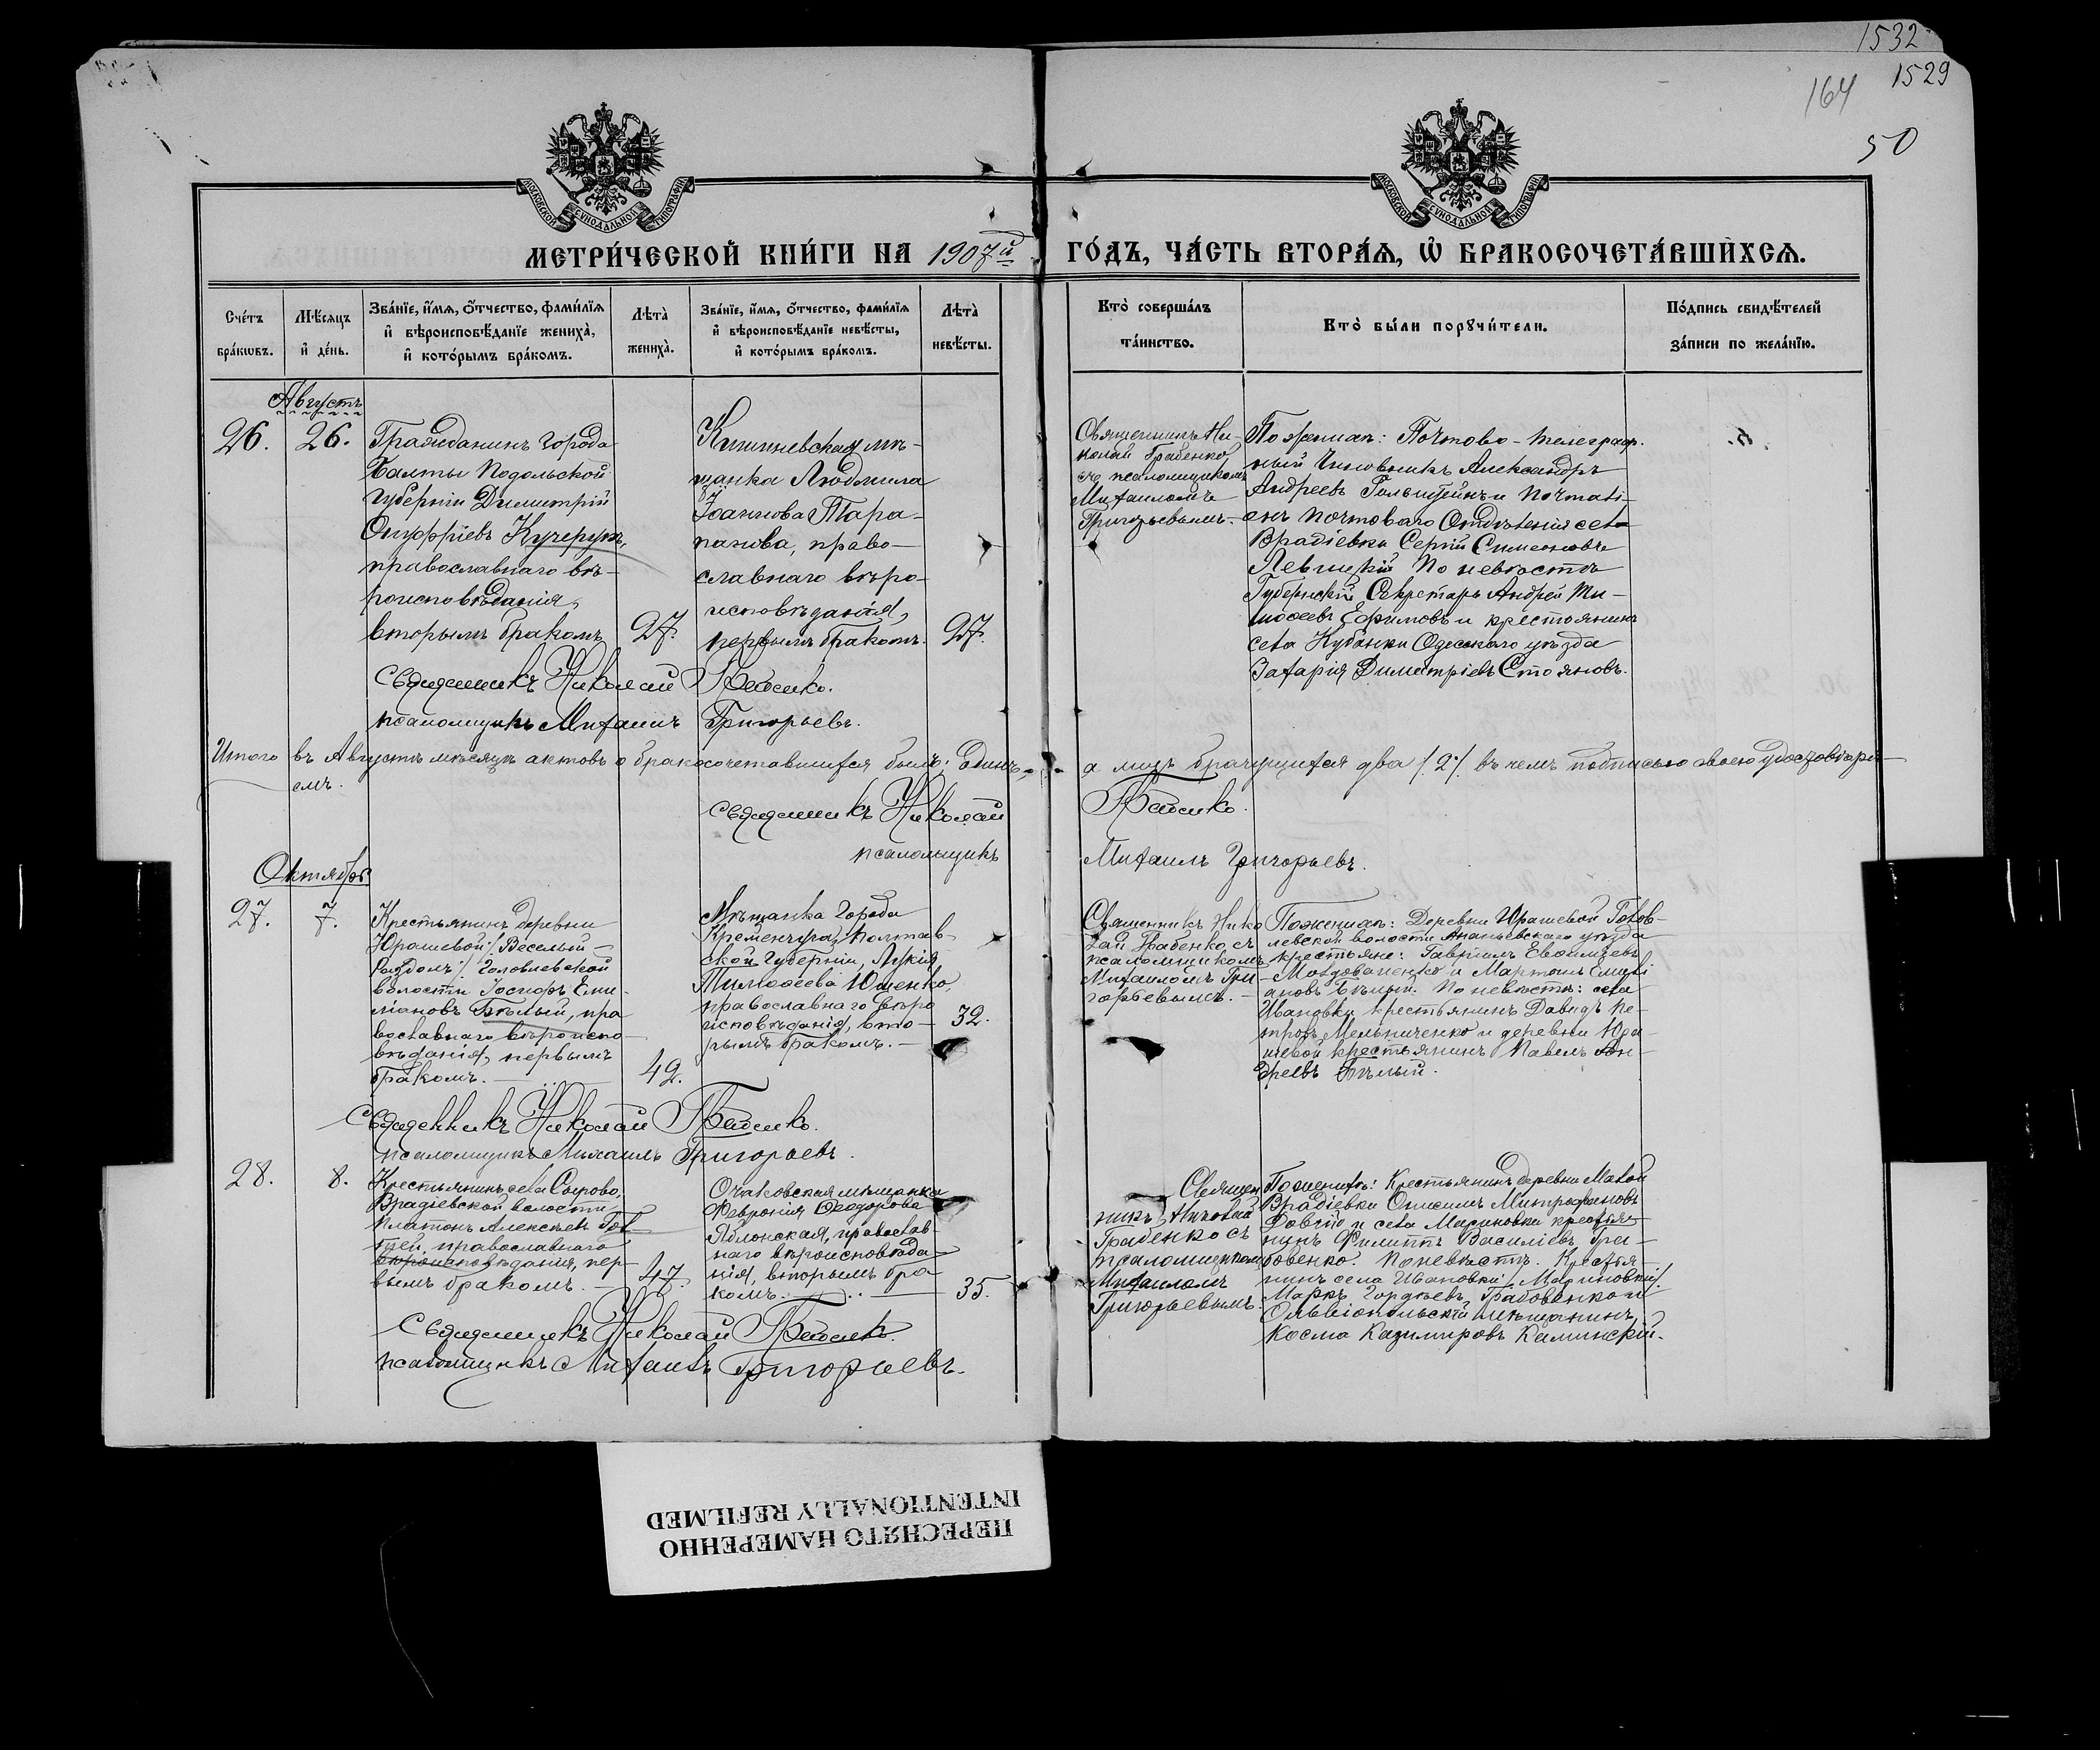 1532
1529
164
50
МОСКОВСКОЙ СѴНОДАЛЬНОЙ ТИПОГРАФІИ
МОСКОВСКОЙ СѴНОДАЛЬНОЙ ТИПОГРАФІИ
МЕТРИ́ЧЕСКОЙ КНИ́ГИ НА 1907й ГО́ДЪ, ЧА́СТЬ ВТОРА́Ѧ, Ѡ҆ БРАКОСОЧЕТА́ВШИХСѦ.
Сче́тъ
бра́кѡвъ.
Мѣ́сяцъ
и҆ де́нь.
Зва́нїе, и҆́мѧ, ѻ҆́тчество, фами́лїѧ
и҆ вѣроисповѣ́данїе жениха̀,
и҆ кото́рымъ бра́комъ.
Лѣта̀
жениха̀.
Зва́нїе, и҆́мѧ, ѻ҆́тчество, фами́лїѧ
и҆ вѣроисповѣ́данїе невѣ́сты,
и҆ кото́рымъ бра́комъ.
Лѣта̀
невѣ́сты.
Кто̀ соверша́лъ
та́инство.
Кто̀ бы́ли порꙋчи́тели.
По́дпись свидѣ́телей
за́писи по жела́нїю.
Августъ
26.
26.
Гражданинъ города
Балты Подольской
губерніи Димитрій
Онуфріевъ Кучерукъ,
православнаго вѣ-
роисповѣданія,
вторымъ бракомъ
27.
Кишиневская мѣ-
щанка Людмила
Іоаннова Тара-
панова, право-
славнаго вѣро-
исповѣданія,
первымъ бракомъ.
27.
Священникъ Ни-
колай Грабенко
съ псаломщикомъ
Михаиломъ
Григорьевымъ.
По женихѣ: Почтово-телеграф-
ный Чиновникъ Александръ
Андреевъ и Почталі-
онъ почтоваго Отдѣленія села
Врадіевки Сергій Симеоновъ
Левицкій По невѣстѣ
Губернскій Секретарь Андрей Ти-
моѳеевъ Ефимовъ и крестьянинъ
села Кубанки Одесскаго уѣзда
Захарія Димитріевъ Стояновъ.
Священникъ Николай Грабенко.
псаломщикъ Михаилъ Григорьевъ.
Итого въ Августѣ мѣсяцѣ актовъ о бракосочетавшихся былъ: Одинъ, а лицъ брачущихся два /2/. въ чемъ подписью своею удостовѣря-
емъ.
Священникъ Николай Грабенко.
псаломщикъ Михаилъ Григорьевъ.
Октябрь
27.
7.
Крестьянинъ деревни
Юрашевой / Веселый-
Раздолъ / Головлевской
волости Іосифъ Еми-
ліановъ Бѣлый, пра
вославнаго вѣроиспо-
вѣданія, первымъ
бракомъ.
42.
Мѣщанка города
Кременчуга, Полтав-
ской губерніи, Лукія
Тимоѳеева Ющенко,
православнаго вѣро
исповѣданія, вто-
рымъ бракомъ.
32.
Священникъ Нико
лай Грабенко съ
псаломщикомъ
Михаиломъ Гри-
горьевымъ.
По женихѣ: Деревни Юрашевой Голов-
левской волости Ананьевскаго уѣзда
крестьяне: Гавріилъ Евѳиміевъ
Молдованенко и Мартинъ Емилі
ановъ Бѣлый. По невѣстѣ: села
Ивановки крестьянинъ Давидъ Пе-
тровъ Мельниченко и деревни Юра-
шевой крестьянинъ Павелъ Ан-
дреевъ Бѣлый.
Священникъ Николай Грабенко.
псаломщикъ Михаилъ Григорьевъ.
28.
8.
Крестьянинъ села Сырово,
Врадіевской волости
Платонъ Алексѣевъ
православнаго
вѣроисповѣданія, пер-
вымъ бракомъ.
47.
Очаковская мѣщанка
Февронія Ѳеодорова
Яблонская, православ-
наго вѣроисповѣда-
нія, вторымъ бра
комъ.
35.
Священ
никъ Николай
Грабенко съ
псаломщикомъ
Михаиломъ
Григорьевымъ.
По женихѣ: Крестьянинъ деревни Малой
Врадіевки Онисимъ Митрофановъ
и села Мариновки крестья-
нинъ Филиппъ Василіевъ Гра-
бовенко. По невѣстѣ. Крестья-
нинъ села Ивановки / Мариновки /.
Маркъ Гордѣевъ Грабовенко и
Ольвіопольскій мѣщанинъ
Косма Казимировъ Каминскій.
Священникъ Николай Грабенко.
псаломщикъ Михаилъ Григорьевъ.
ПЕРЕСНЯТО НАМЕРЕННО
INTENTIONALLY REFILMED